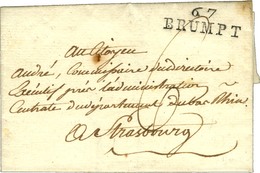 67
BRUMPT
Au Citoyen
André, Commissaire du directoire
Exécutif près l'administration
Centrale du département du bas Rhin
a Strasbourg